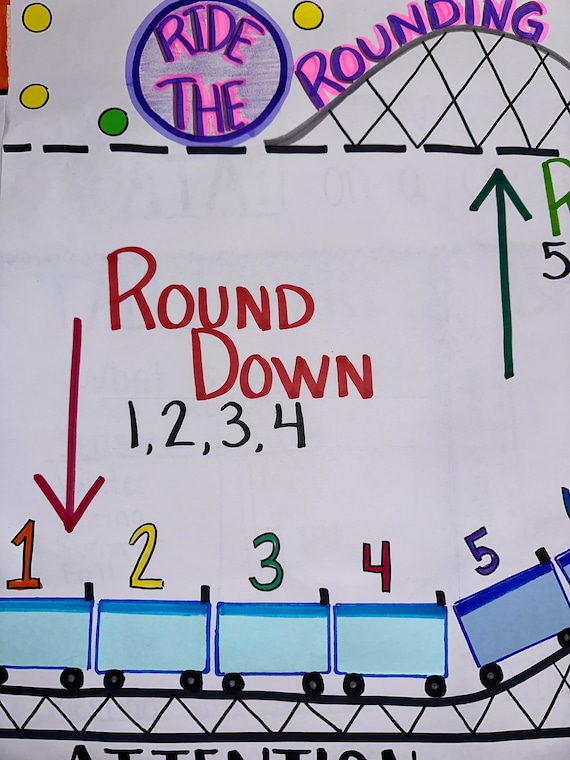 RIDE
THE
ROUNDING
R
5
ROUND
DOWN
1, 2, 3, 4
1 2 3 4 5
ATTENTION